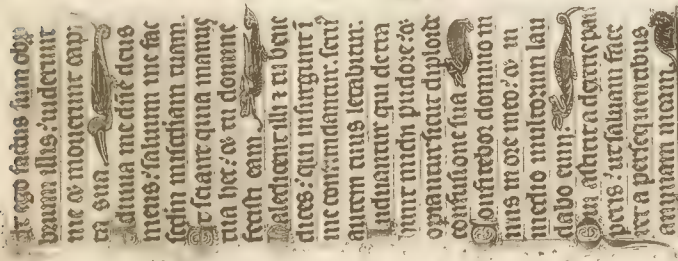 Et ego factus sum obp̄
brium illis: uiderunt
me ⁊ mouerunt capi
ta sua
Adiuua me dn̄e deus
meus: saluum me fac
scd̄m mīam tuam.
Et sciant quia manus
tua hec: ⁊ tu domine
fecisti eam
Maledicent illi ⁊ tu bene
dices: qui insurgunt ī
me confundantur. seruꝰ
autem tuus letabitur.
Induantur qui detra
hunt michi pudore: ⁊
operiantur sicut diploide
confusione sua
Confitebor domino ni
mis in ore meo: ⁊ in
medio multorum lau
dabo eum.
Qui astitit a dextris pau
peris: ut saluam face
ret a persequentibus
animam meam.